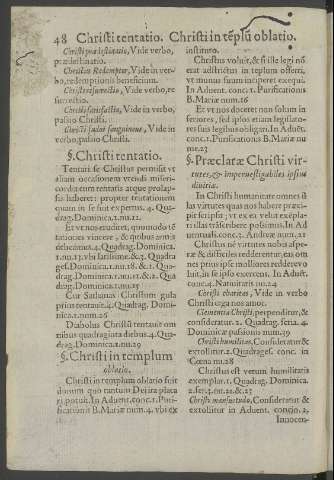 48 Christi tentatio. Christi in tẽplũ oblatio.
Christi prædestinatio, Vide verbo,
prædestinatio.
Christus Redemptor, Vide in ver-
bo, redemptionis beneficium.
Christi resurrectio, Vide verbo, re
surrectio.
Christi satisfactio, Vide in verbo,
passio Christi.
Christi sudor sanguineus, Vide in
verbo, passio Christi.
§. Christi tentatio.
Tentari se Christus permisit vt
aliam occasionem vtendi miseri-
cordia cum tentatis atque prolap-
sis haberet: propter tentationem
quam in se fuit expertus. 4. Qua-
drag. Dominica. 1. nu. 12.
Et vt nos erudiret, quomodo tẽ
tationes vincere, & quibus armis
debeamus. 4. Quadrag. Dominica.
1. nu. 13. vbi latissime. & 3. Quadra
ges. Dominica. 1. nu. 18. & 2. Qua-
drag. Dominica. 1. nu. 17. & 1. Qua-
drag. Dominica. 1. nu. 25.
Cur Sathanas Christum gula
prius tentauit. 4. Quadrag. Domi-
nica. 1. num. 26
Diabolus Christũ tentauit om
nibus quadraginta diebus. 4. Qua-
drag. Dominica. 1. nu. 29
§. Christi in templum
oblatio.
Christi in templum oblatio fuit
donum quo tantum Dei ira placa
ri potuit. In Aduent. conc. 1. Puri-
ficationis B. Mariæ num. 4. vbi ex
instituto.
Christus voluit, & si ille legi nõ
erat adstrictus in templum offerri,
vt munus suum insiperet exequi.
In Aduent. conc. 1. Purificationis
B. Mariæ num. 16
Et vt nos doceret non solum in
seruiores, sed ipsos etiam legislato-
res suis legibus obligari. In Aduent.
conc. 1. Purificationis B. Mariæ nu
mer. 23
§. Præclaræ Christi vir-
tutes, & imperuestigabiles ipsius
diuitiæ.
In Christi humanitate omnes il
las virtutes quas nos habere præci-
pit scriptura; vt ex ea velut exẽpla-
ri illas trãscribere possimus. In Ad
uentuali. conc. 3. Andreæ num. 21
Christus nè virtutes nobis aspe-
ræ & difficiles redderentur, eas om
nes prius ipse molliores reddere vo
luit, in se ipso exercens. In Aduct.
conc. 4. Natiuitatis nu. 24
Christi charitas, Vide in verbo
Christi erga nos amor.
Clementia Christi, perpenditur, &
consideratur. 2. Quadrag. feria. 4.
Dominicæ passionis num. 39
Christi humilitas, Consideratur &
extollitur. 2. Quadrages. conc. in
Cœna nu. 28
Christus est verum humilitatis
exemplar. 1. Quadrag. Dominica.
2. ser. 3. nu. 22. & 23
Christi mansuetudo, Consideratur &
extollitur in Aduent. concio. 2,
Innocen-